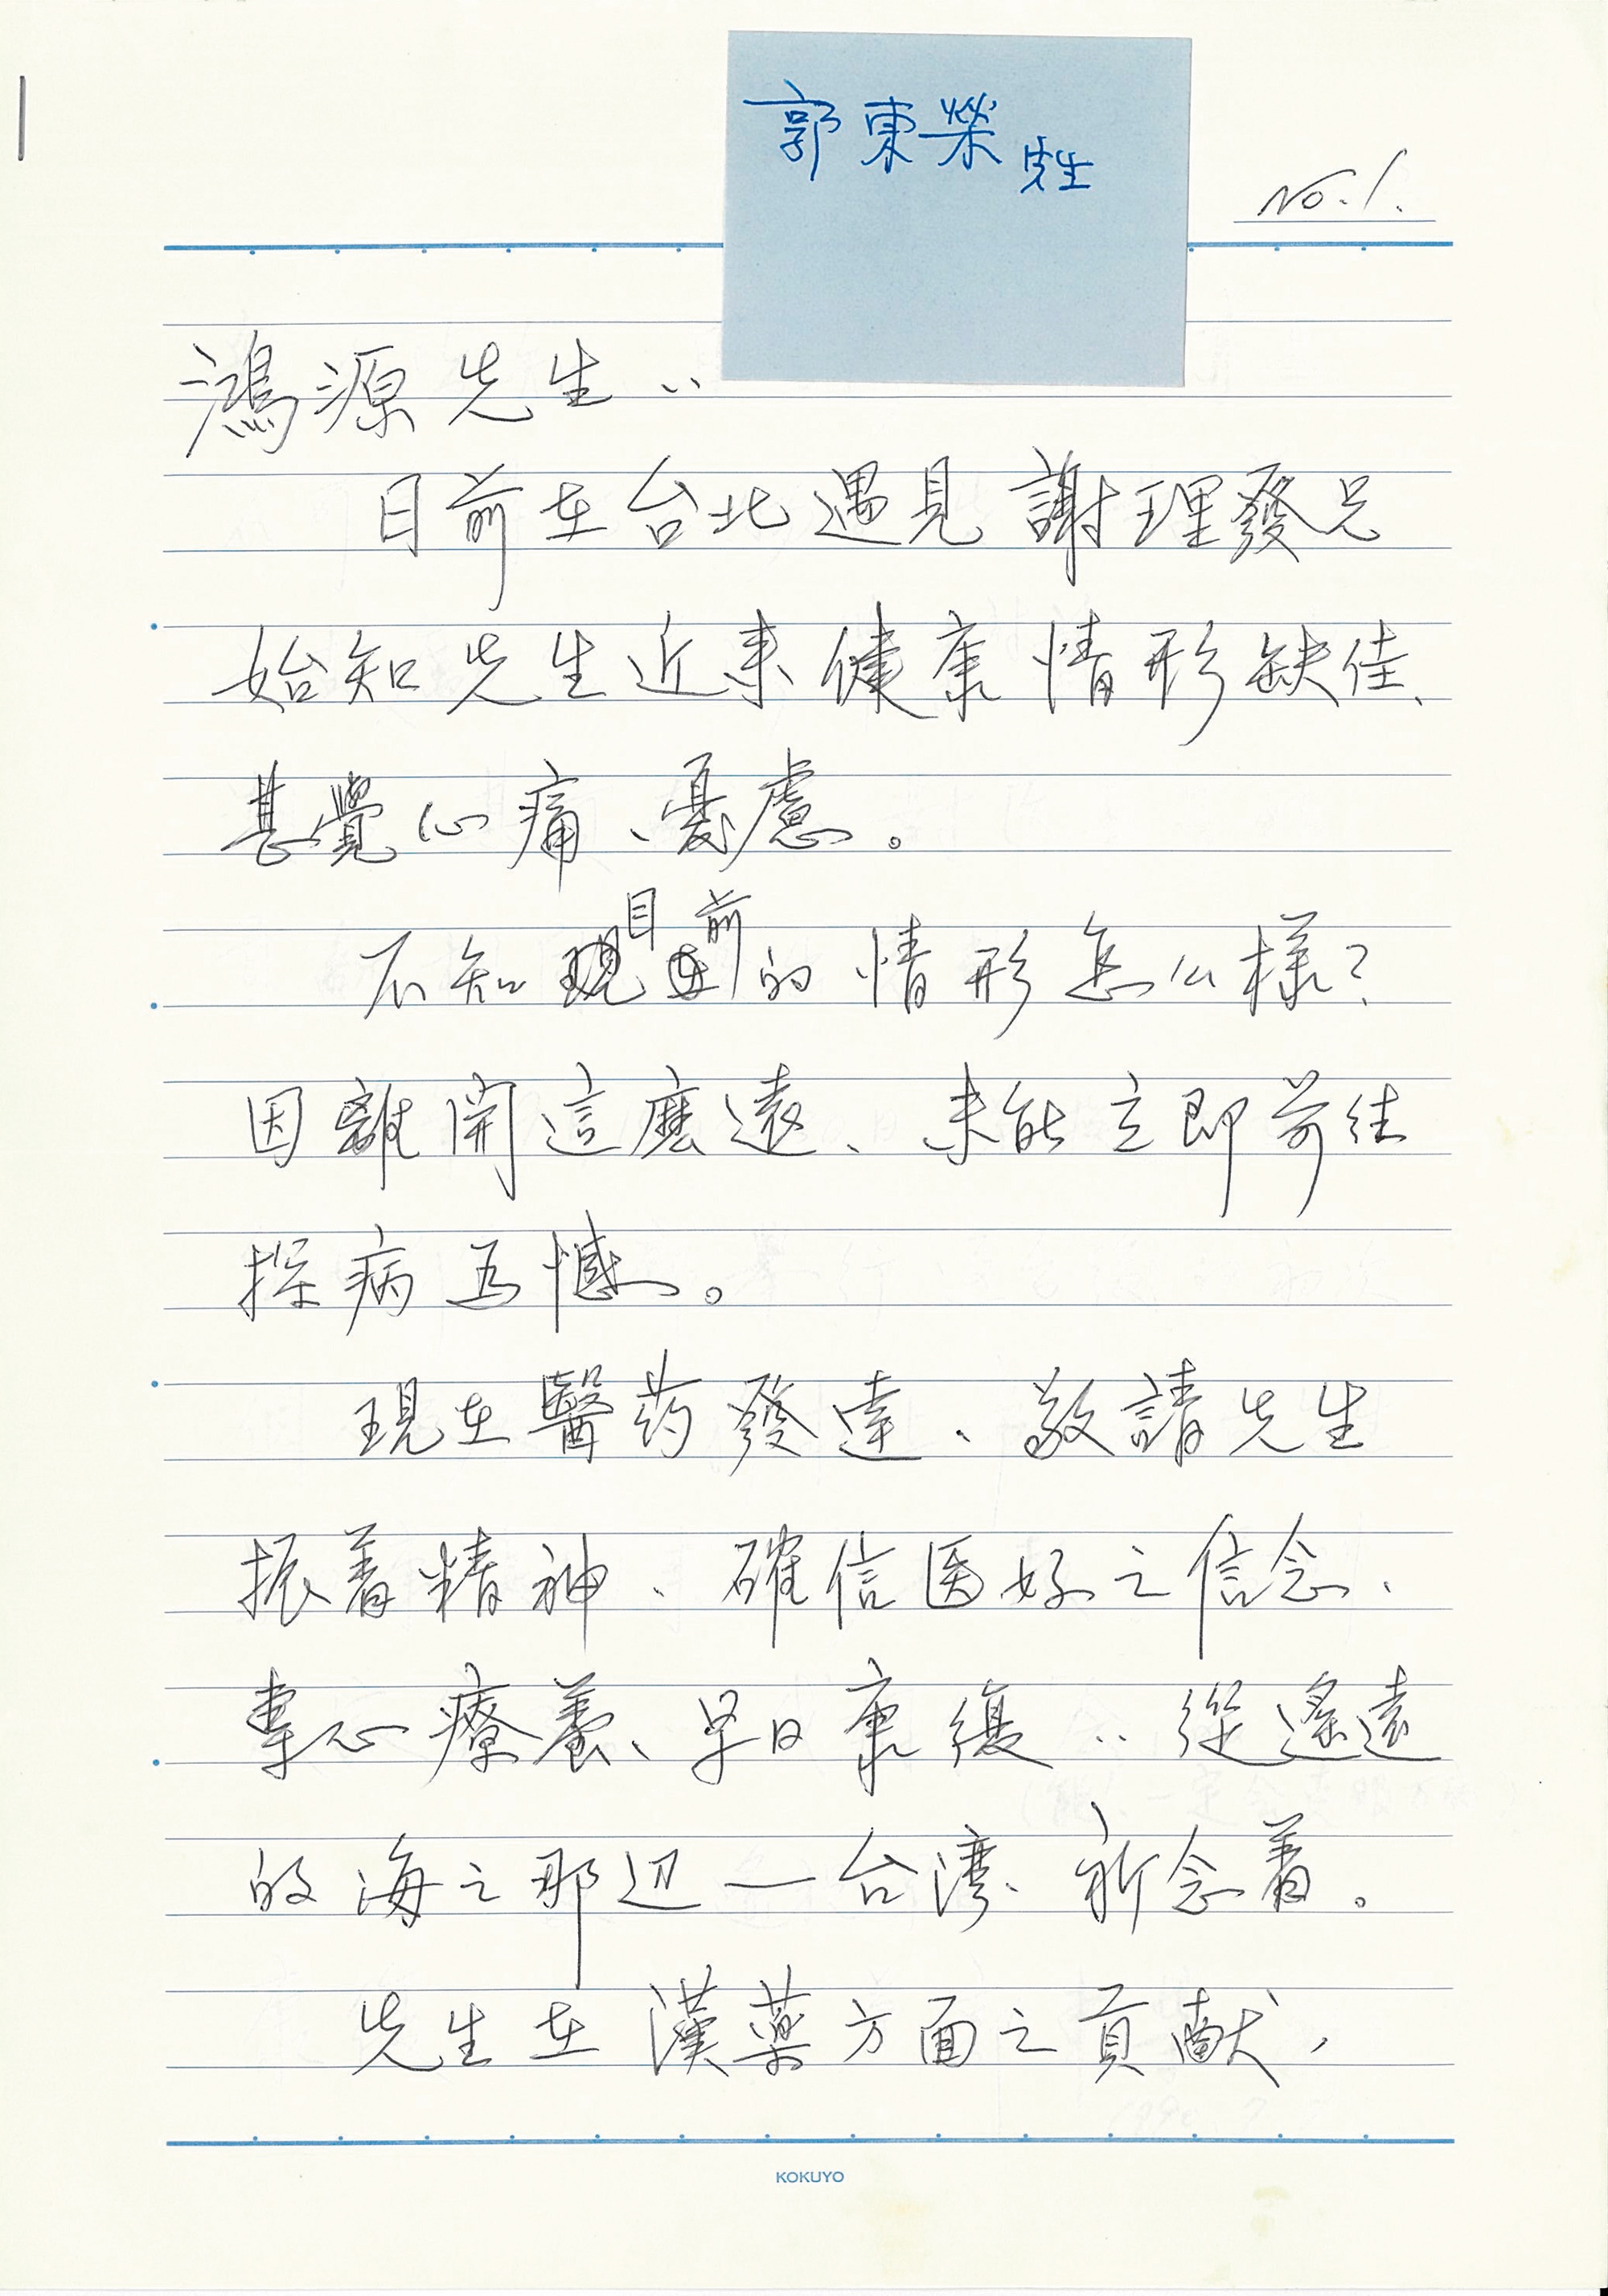 郭東榮先生
No.1.
鴻源先生：
日前在台北遇見謝理發兄
始知先生近来健康情形缺佳、
甚覺心痛、憂慮。
不知目前的情形怎么樣？
因離開這麽遠、未能立即前往
探病為憾。
現在醫药發達、敬請先生
振着精神、確信医好之信念、
專心療養、早日康復：從遙遠
的海之那辺—台湾、祈念着。
先生在漢薬方面之貢献，
KOKUYO